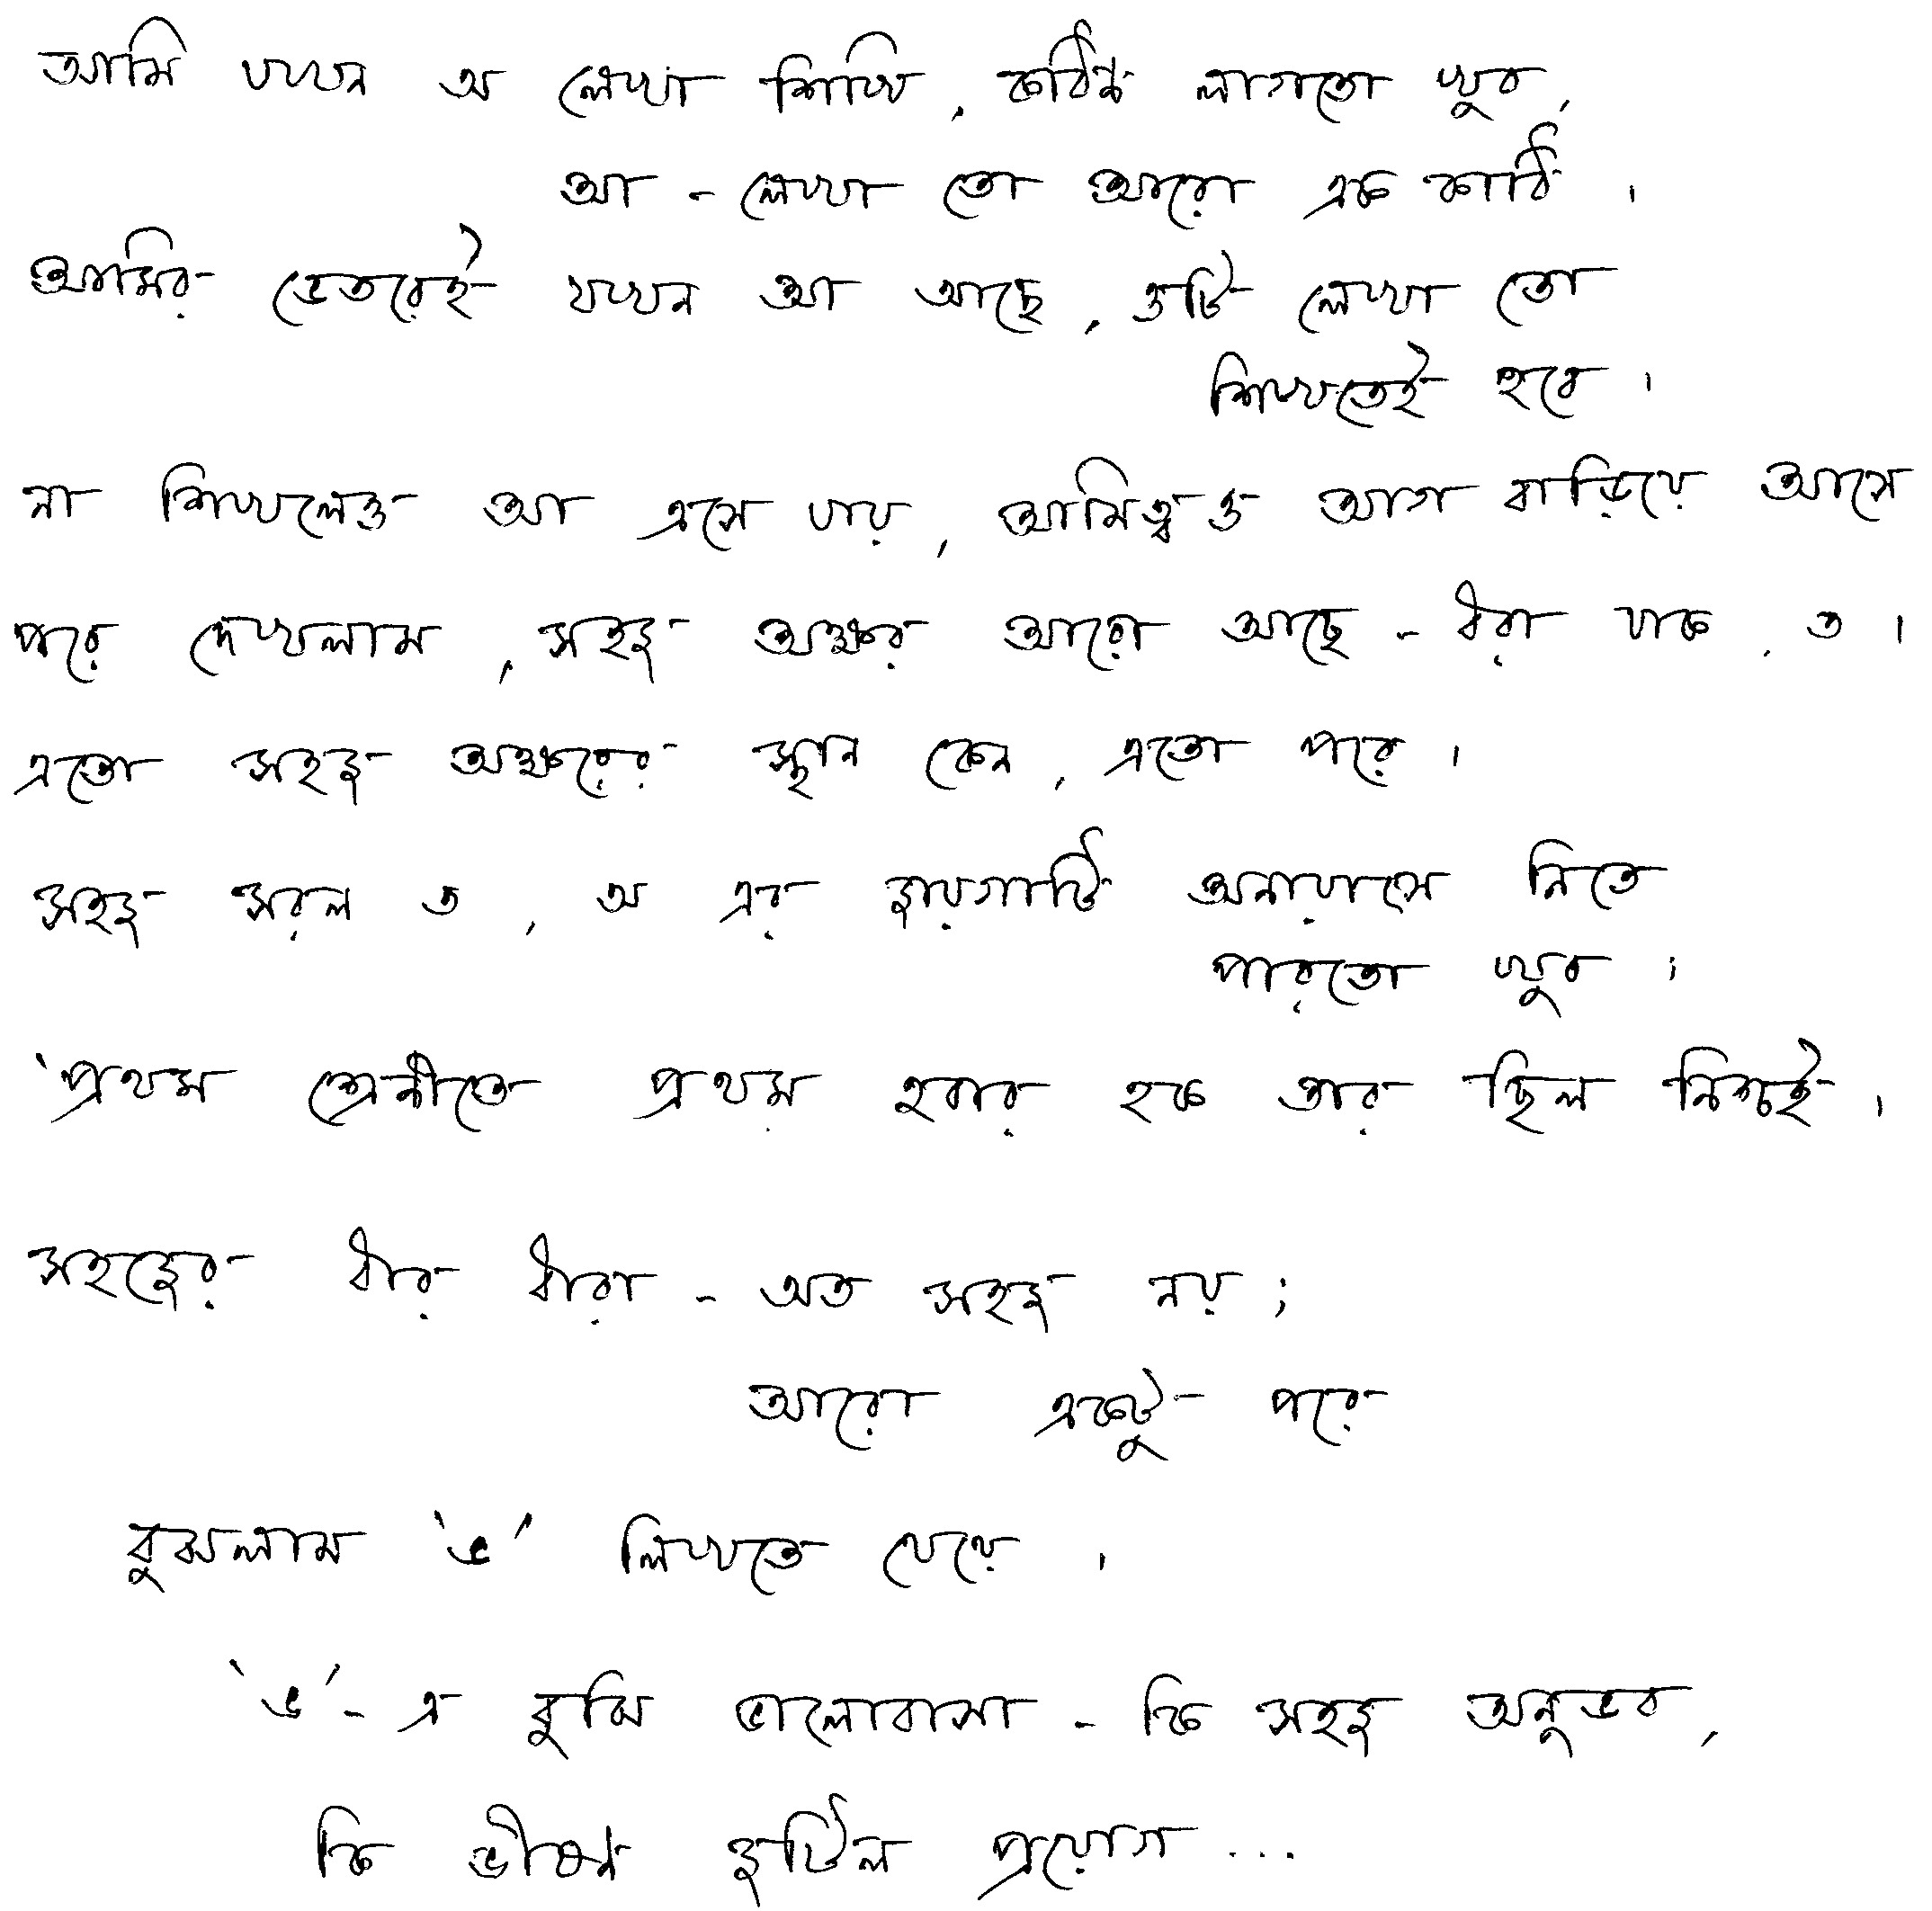 আমি যখন অ লেখা শিখি, কঠিন লাগতো খুব,
আ - লেখা তো আরো এক কাঠি।
আমির ভেতরেই যখন আ আছে, ওটি লেখা তো
শিখতেই হবে।
না শিখলেও আ এসে যায়, আমিত্বও আগ বাড়িয়ে আসে
পরে দেখলাম, সহজ অক্ষর আরো আছে - ধরা যাক, ত।
এতো সহজ অক্ষরের স্থান কেন, এতো পরে।
সহজ সরল ত, অ এর জায়গাটি অনায়াসে নিতে
পারতো খুব;
'প্রথম শ্রেনীতে প্রথম হবার হক তার ছিল নিশ্চই।
সহজের ধার ধারা - অত সহজ নয়;
আরো একটু পরে
বুঝলাম 'ভ' লিখতে যেয়ে।
'ভ' - এ বুঝি ভালোবাসা - কি সহজ অনুভব,
কি ভীষন জটিল প্রয়োগ...